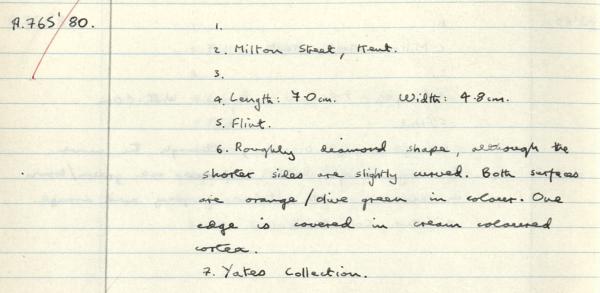 A.765'80.
1.
2. Milton Street, Kent.
3.
4. Length: 7.0cm. Width: 4.8cm.
5. Flint.
6. Roughly diamond shape, although the
shorter sides are slightly curved. Both surfaces
are orange/olive green in colour. One
edge is covered in cream coloured
cortex.
7. Yates Collection.